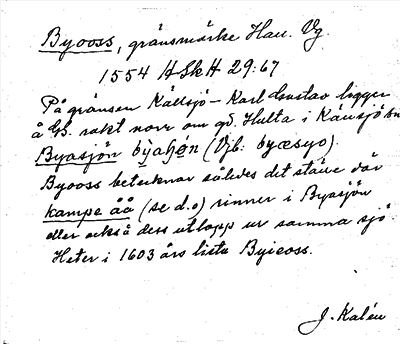 Byooss, gränsmärke Hau. Vg
1554 HSkH 29:67
På gränsen Källsjö – Karl Gustav ligger
å Gb. rakt norr om gd. Hulta i Käusjö bn
Byasjön (Vjb: byæsyo).
Byooss betecknar således det ställe där
kampe åå (se d.o) rinner i Byasjön
eller också dess utlopp ur samma sjö.
Heter i 1603 års lista Byieoss.
J. Kalén